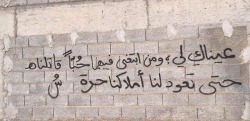 عيناك لي ومن ابتغى فيها حُباً قاتلناه
حتى تعود لنا أملاكنا حرة سُ